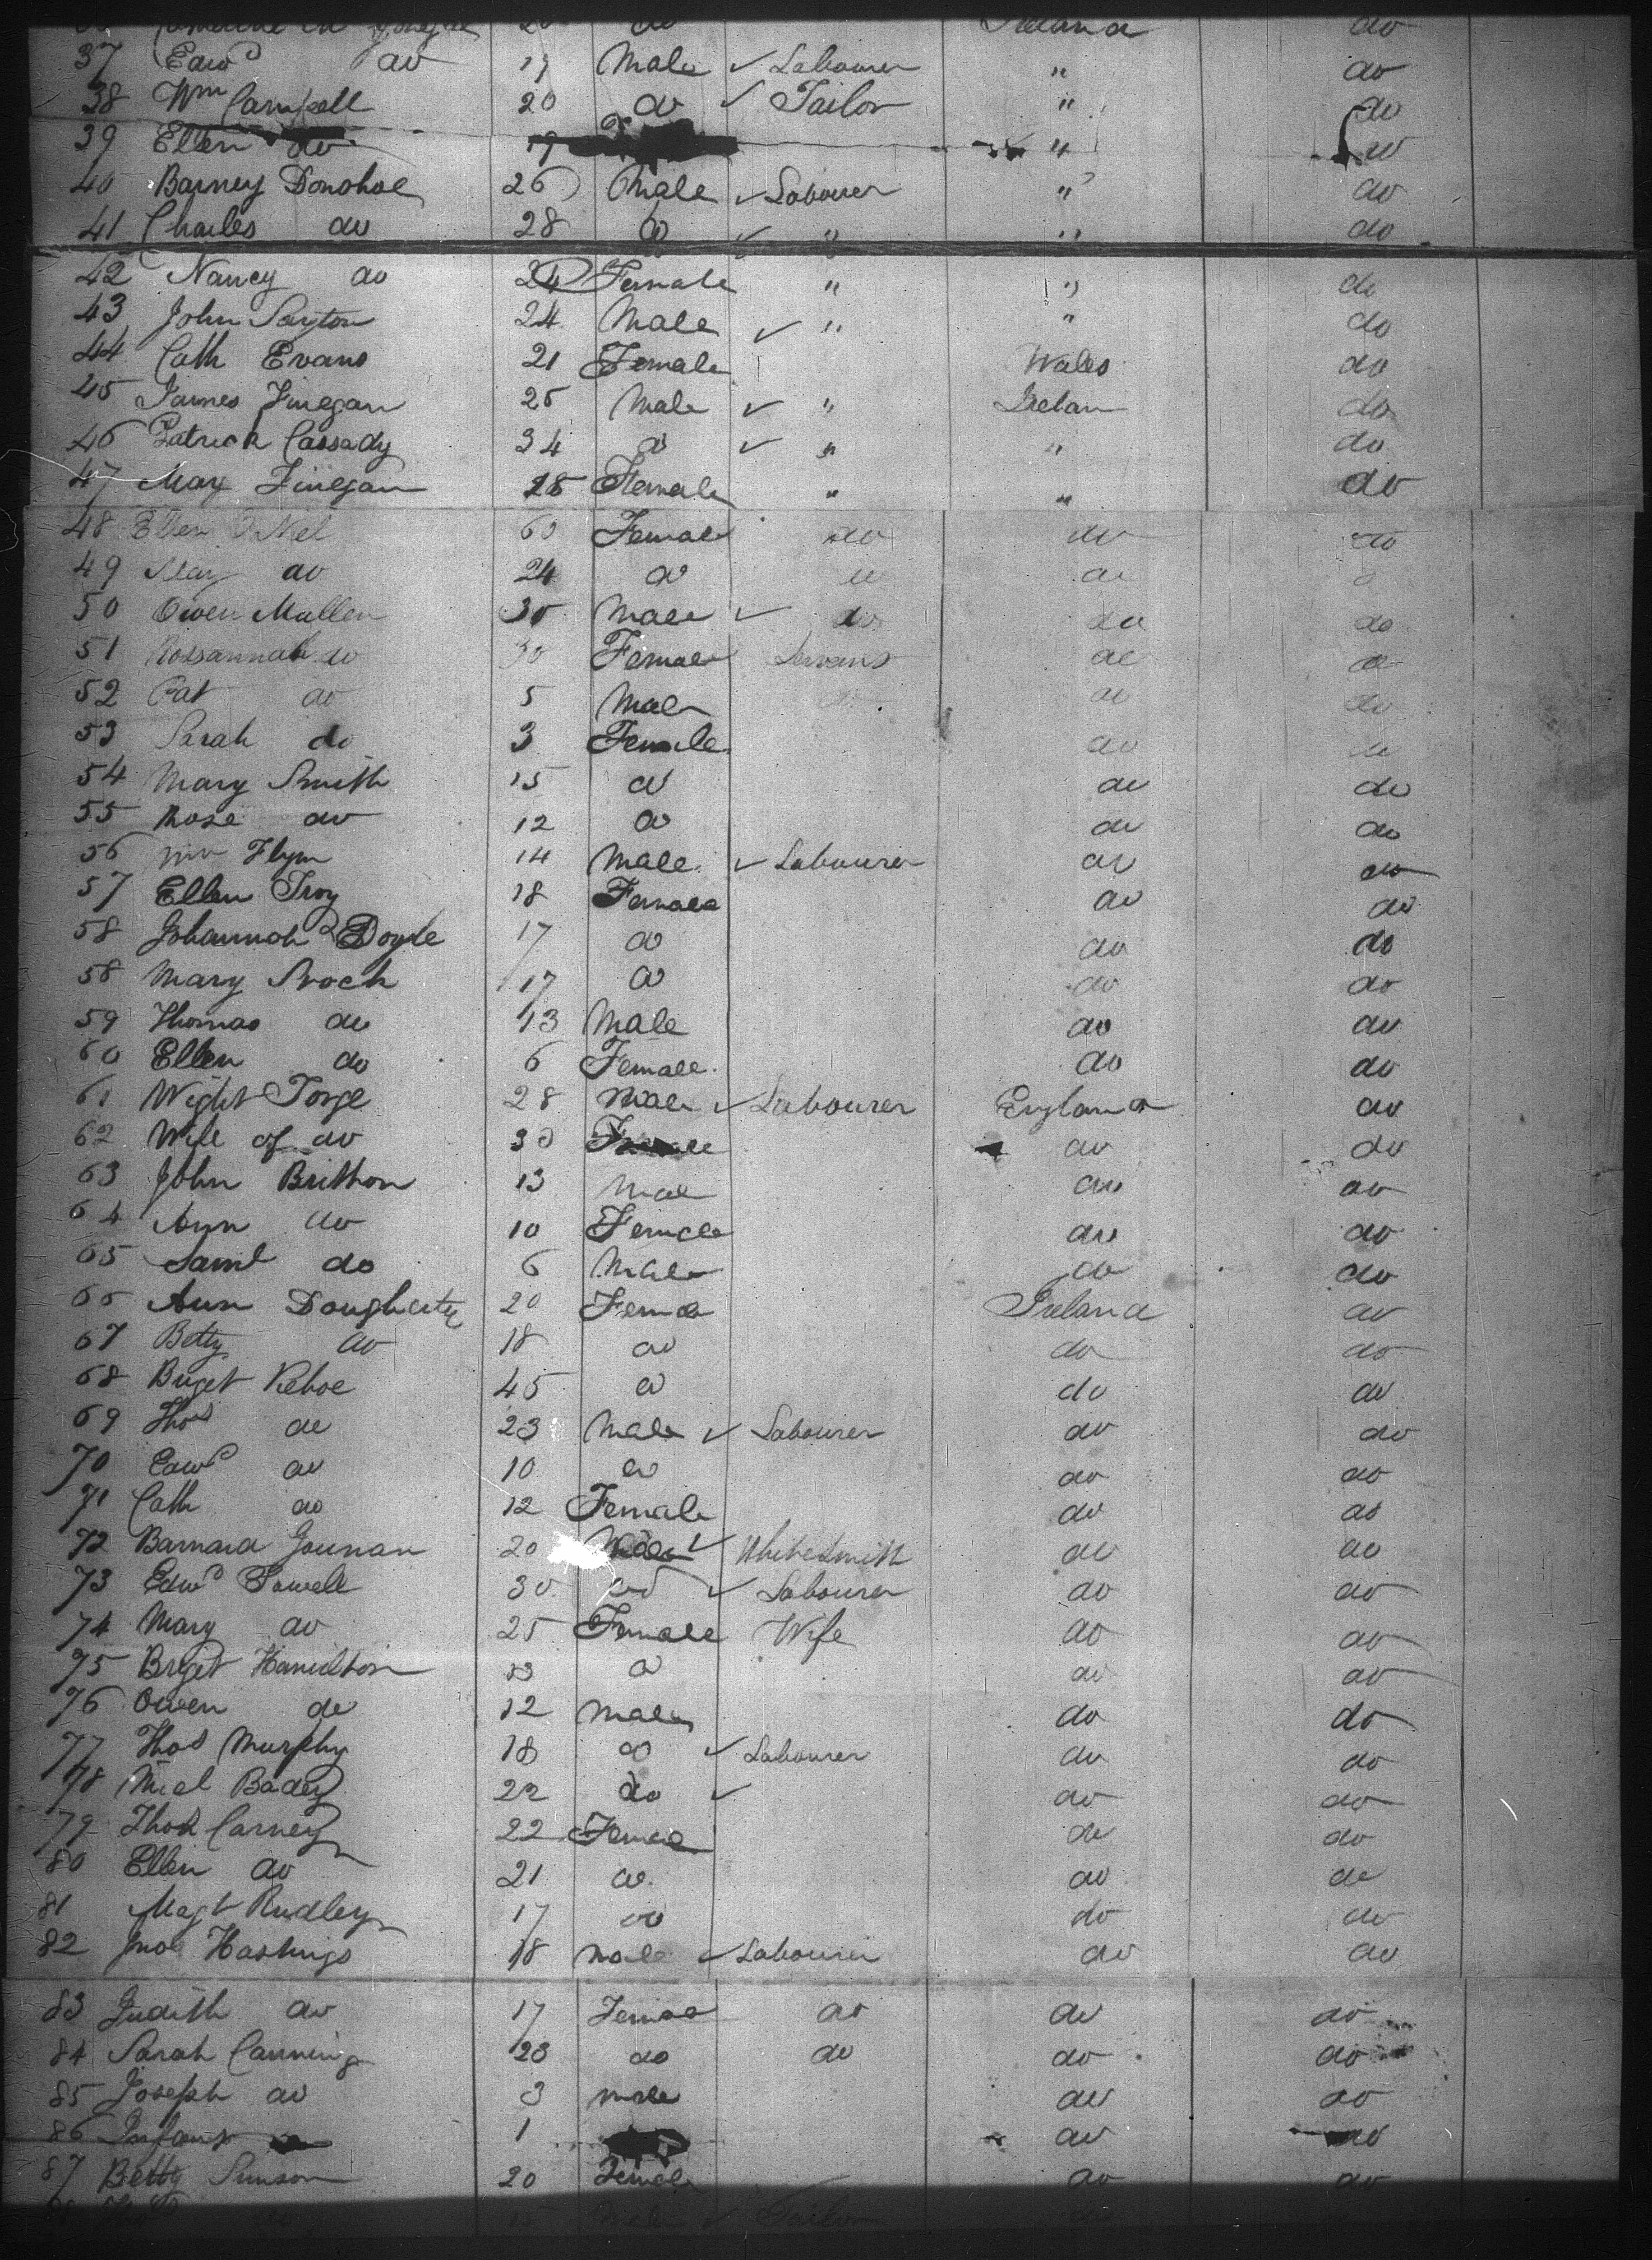 Ireland do
37 Edwd do 19 Male ✓ Labourer " do
38 Wm Campbell 20 do ✓ Tailor " do
39 Ellen do 19 " do
40 Barney Donohoe 26 Male ✓ Labourer " do
41 Charles do 28 do ✓ " " do
42 Nancy do 24 Female " " do
43 John Sayton 24 Male ✓ " " do
44 Cath Evans 21 Female Wales do
45 James Finegan 25 Male ✓ " Irelan do
46 Patrick Cassady 34 do ✓ " " do
47 Mary Finegan 28 Female " " do
48 Ellen O Niel 60 Female do do do
49 Mary do 24 do do do
50 Owen Mullen 30 Male ✓ do do do
51 Rossannah do 30 Female Servant do do
52 Pat do 5 Male do do
53 Sarah do 3 Female do do
54 Mary Smith 15 do do do
55 Rose do 12 do do do
56 Wm Flynn 14 Male ✓ Labourer do do
57 Ellen Troy 18 Female do do
58 Johannah Doyle 17 do do do
58 Mary Sroch 17 do do do
59 Thomas do 13 Male do do
60 Ellen do 6 Female do do
61 Wight Torge 28 Male ✓ Labourer England do
62 Wife of do 30 Female do do
63 John Britton 13 Male do do
64 Ann do 10 Female do do
65 Saml do 6 Male do do
66 Ann Dougherty 20 Femal Ireland do
67 Betty do 18 do do do
68 Briget Kehoe 45 do do do
69 Thos do 23 Male ✓ Labourer do do
70 Edwd do 10 do do do
71 Cath do 12 Female do do
72 Barnard Gounan 20 Male ✓ Whitesmith do do
73 Edwd Powell 30 do ✓ Labourer do do
74 Mary do 25 Female Wife do do
75 Briget Hamilton do do do
76 Owen do 12 Male do do
77 Thos Murphy 18 do ✓ Labourer do do
78 Miel Badey 22 do ✓ do do
79 Thos Carney 22 Female do do
80 Ellen do 21 do do do
81 Magt Rudley 17 do do do
82 Jno Hastings 18 Male ✓ Labourer do do
83 Judith do 17 Female do do do
84 Sarah Canning 23 do do do do
85 Joseph do 3 Male do do
86 Infant 1 do do
87 Betty Simson 20 Female do do